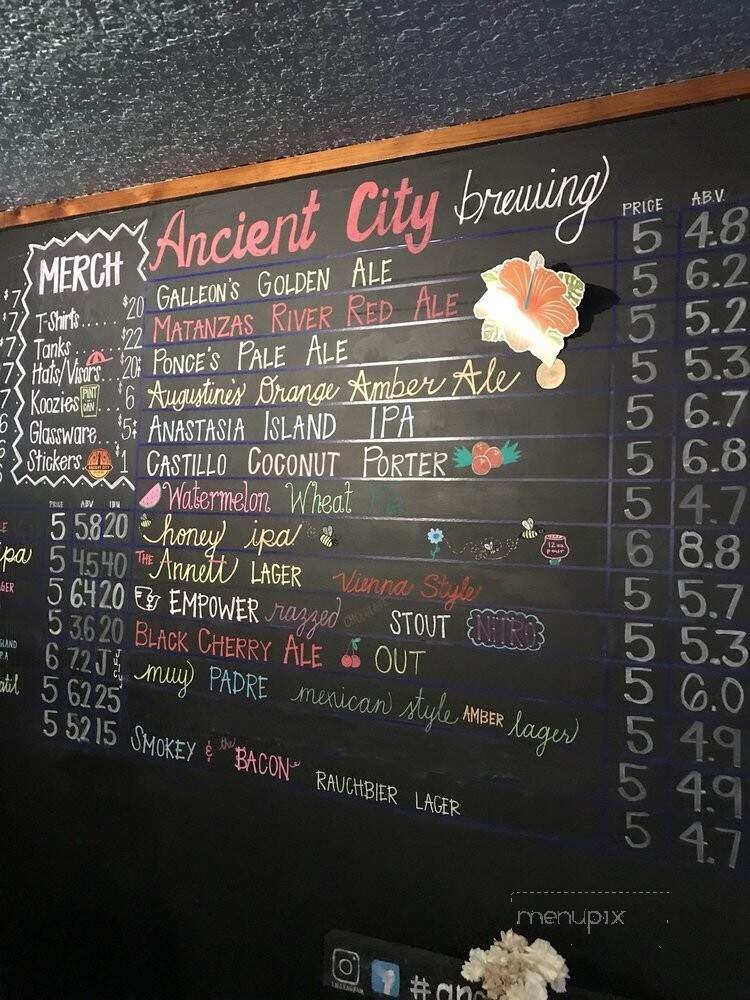 Ancient City brewing
PRICE A.B.V.
MERCH
T-Shirts..... $20
Tanks...... $22
Hats/Visors... $20
Koozies PINT CAN $6
Glassware... $5
Stickers. ANCIENT CITY $1
GALLEON'S GOLDEN ALE
MATANZAS RIVER RED ALE
PONCE'S PALE ALE
Augustine's Orange Amber Ale
ANASTASIA ISLAND IPA
CASTILLO COCONUT PORTER
Watermelon Wheat
honey ipa 12oz pour
THE Annett LAGER Vienna Style
EMPOWER razzed CHOCOLATE STOUT NITRO
BLACK CHERRY ALE OUT
muy PADRE mexican style AMBER lager
SMOKEY & the BACON RAUCHBIER LAGER
5 4.8
5 6.2
5 5.2
5 5.3
5 6.7
5 6.8
5 4.7
6 8.8
5 5.7
5 5.3
5 6.0
5 4.9
5 4.9
5 4.7
$7
7
7
7
PRICE ABV IBU
5 5.8 20
ipa 5 4.5 40
5 6.4 20
5 3.6 20
6 7.2 Juicy
5 6.2 25
5 5.2 15
menupix
INSTAGRAM
f
#an